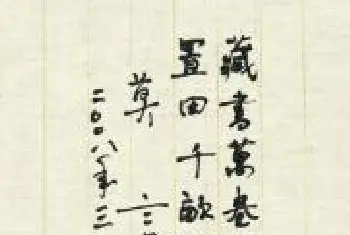 藏書萬卷
置田千畝
莫言
二〇〇八年三